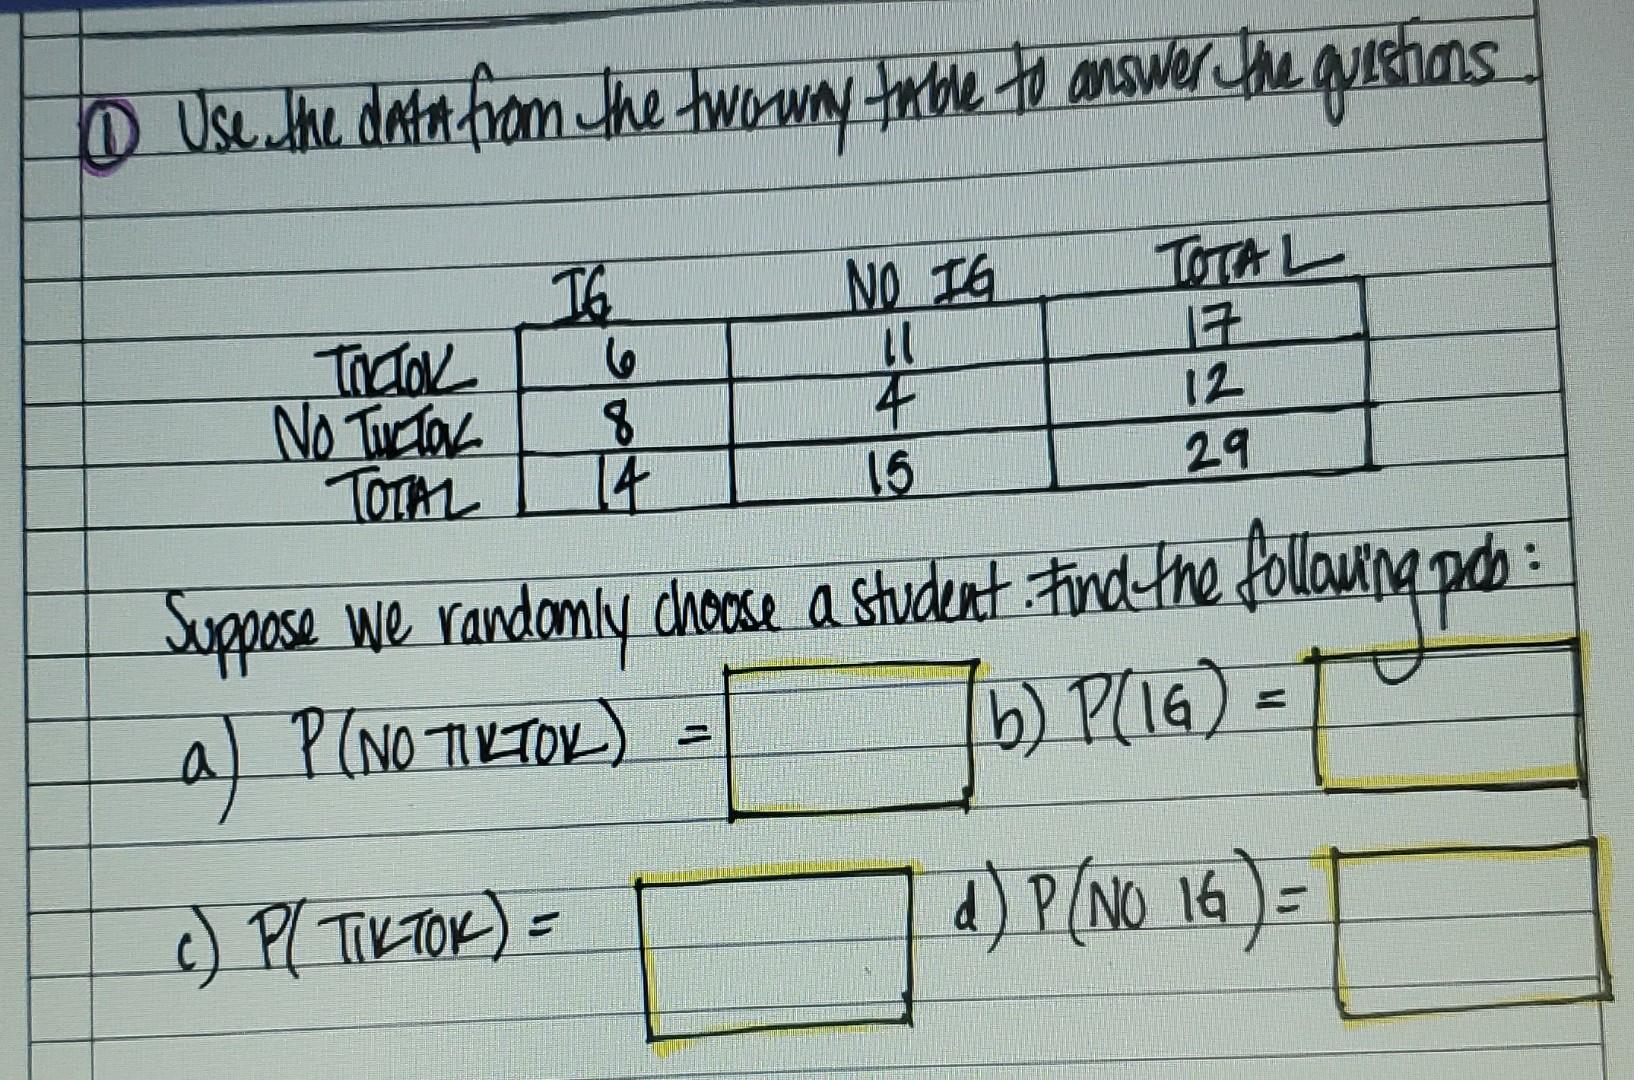 ① Use the data from the two way table to answer the questions.
IG NO IG TOTAL
TikTok 6 11 17
No TikTok 8 4 12
TOTAL 14 15 29
Suppose we randomly choose a student. Find the following prob:
a) P(NO TIKTOK) = b) P(IG) =
c) P(TIKTOK) = d) P(NO IG) =